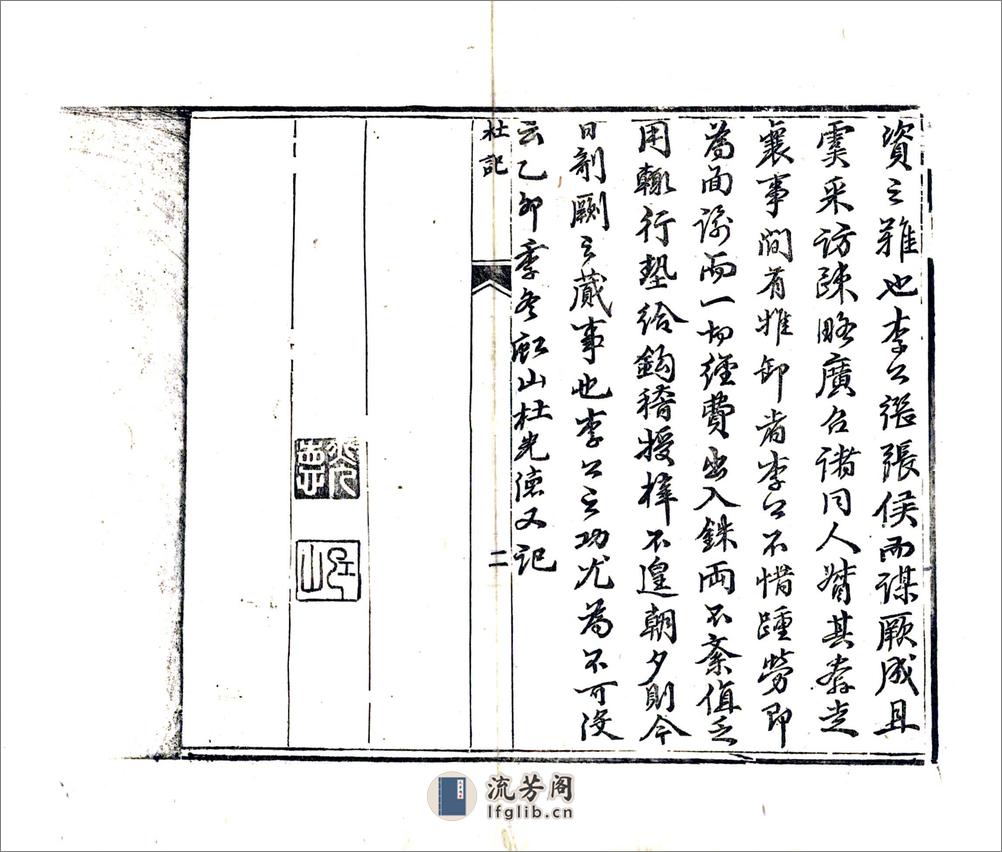 資之難也李公從張侯而謀厥成且
虞采訪疎略廣召諸同人胥其奔走
襄事間有推卸者李公不惜踵勞即
為面諭而一切經費出入銖両不紊值乏
用輒行墊給鈎稽授梓不遑朝夕則今
日剞劂之蕆事也李公之功尤為不可没
云乙卯季冬虹山杜光德又記
杜記
二
光德
虹山
流芳阁
lfglib.cn